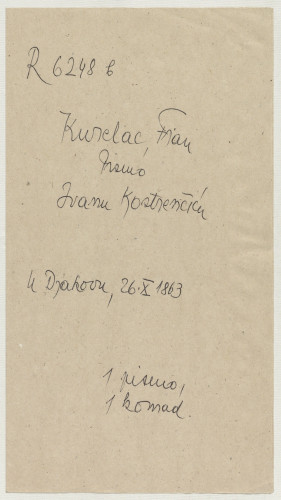 R 6248 b
Kurelac, Fran
Pismo
Ivanu Kostrenčiću
U Djakovu, 26. X 1863
1 pismo,
1 komad.